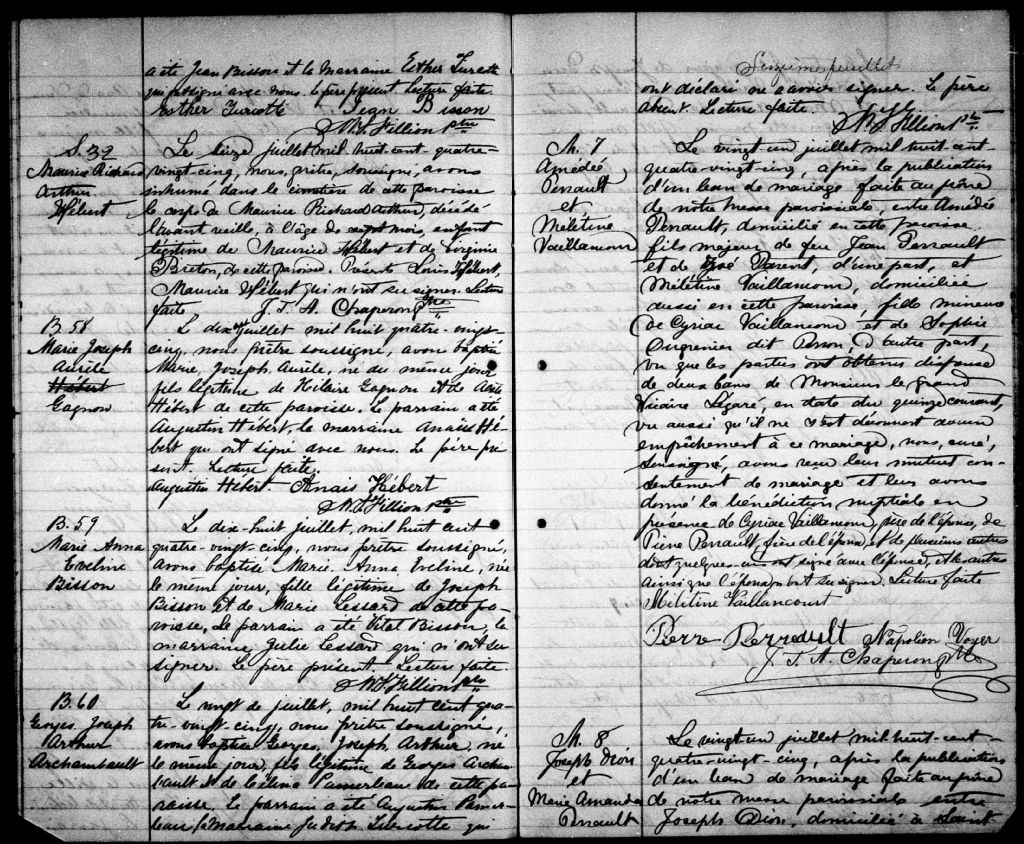 a été Jean Bisson et la marraine Esther Turcotte
qui ont signé avec nous. Le père présent. Lecture faite.
Esther Turcotte Jean Bisson
N. J. Fillion Ptre
S. 32
Maurice Richard
Arthur
Hébert
Le seize juillet mil huit-cent-quatre-
vingt-cinq, nous, prêtre, soussigné, avons
inhumé dans le cimetière de cette paroisse
le corps de Maurice Richard Arthur, décédé
l'avant veille, à l'âge de mois, enfant
légitime de Maurice Hébert et de Virginie
Breton, de cette paroisse. Présents Louis Hébert,
Maurice Hébert qui n'ont su signer. Lecture
faite. J. T. A. Chaperon Ptre
B. 58
Marie Joseph
Aurèle
Hébert
Gagnon
Le dix-sept juillet mil huit quatre-vingt-
cinq, nous prêtre soussigné, avons baptisé
Marie, Joseph Aurèle, né du même jour,
fils légitime de Hilaire Gagnon et de
Hébert de cette paroisse. Le parrain a été
Augustin Hébert, la marraine Anaïs Hé-
bert qui ont signé avec nous. Le père pré
sent. Lecture faite.
Augustin Hébert. Anais Hébert
N. J. Fillion Ptre
B. 59
Marie Anna
Eveline
Bisson
Le dix-huit juillet, mil huit cent
quatre-vingt-cinq, nous prêtre soussigné,
avons baptisé Marie, Anna Eveline, née
le même jour, fille légitime de Joseph
Bisson et de Marie Lessard de cette pa-
roisse. Le parrain a été Vital Bisson, la
marraine Julie Lessard qui n'ont su
signer. Le père présent. Lecture faite.
N. J. Fillion Ptre
B. 60
Georges, Joseph
Arthur
Archambault
Le vingt de juillet, mil huit cent qua-
tre-vingt-cinq, nous prêtre soussigné,
avons baptisé Georges, Joseph, Arthur, né
le même jour, fils légitime de Georges Archam-
bault et de Célina Pamerleau de cette pa-
roisse. Le parrain a été Augustin Pamer-
leau, la marraine Judith Turcotte qui
Seizième feuillet
ont déclaré ne savoir signer. Le père
absent. Lecture faite.
N. J. Fillion Ptre
M. 7
Amédé
Perrault
et
Mélétine
Vaillancour
Le vingt un juillet mil huit-cent-
quatre-vingt-cinq, après la publication
d'un ban de mariage faite au prône
de notre messe paroissiale, entre Amédée
Perrault, domicilié en cette paroisse,
fils majeur de feu Jean Perrault
et de Zoé Parent, d'une part, et
Mélétine Vaillancour, domiciliée
aussi en cette paroisse, fille mineure
de Cyriac Vaillancour, et de Sophie
dit d'autre part,
vu que les parties ont obtenu dispense
de deux bans de Monsieur le Grand
Vicaire Légaré, en date du quinze courant,
vu aussi qu'il ne s'est découvert aucun
empêchement à ce mariage, nous, curé,
soussigné, avons reçu leur mutuel con-
sentement de mariage et leur avons
donné la bénédiction nuptiale en
présence de Cyriac Vaillancour, père de l'épouse, de
Pierre Perrault, frère de l'époux, et de plusieurs autres
dont quelques-uns ont signé avec l'épouse, et les autres
ainsi que l'époux n'ont su signer. Lecture faite
Mélitine Vaillancourt
Pierre Perreault Napoléon Voyer
J. T. A. Chaperon Ptre
M. 8
Joseph Dion
et
Marie Amanda
Perrault
Le vingt-un juillet mil-huit-cent-
quatre-vingt-cinq, après la publication
d'un ban de mariage faite au prône
de notre messe paroissiale entre
Joseph Dion, domicilié à Saint-